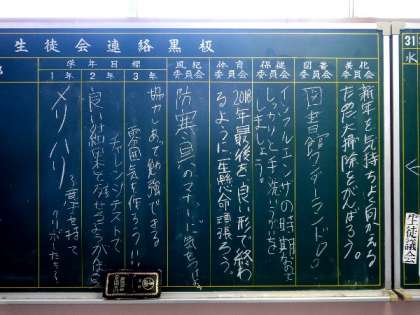 生徒会連絡黒板
学年目標
1年
2年
3年
風紀委員会
体育委員会
保健委員会
図書委員会
美化委員会
新年を気持ちよく向かえる
ために大掃除をがんばろう。
図書館ワンダーランド
インフルエンザの時期なので
しっかりと手洗いうがいを
しましょう。
2018年最後を良い形で終わ
るように一生懸命頑張ろう。
防寒具のマナーに気をつけよう
協力しあって勉強できる
雰囲気を作ろう!!
チャレンジテストで
良い結果を残せるようがんばろう
メリハリ
を意を持て
31
(水
生徒議会